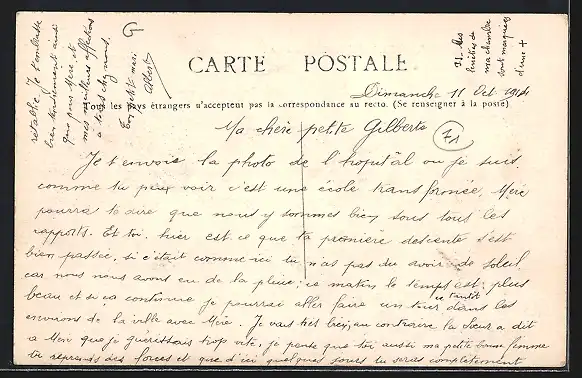 CARTE POSTALE
Tous les pays étrangers n'acceptent pas la correspondance au recto. (Se renseigner à la poste)
Dimanche 11 Oct 1914
71
Ma chère petite Gilberte
Je t'envoie la photo de l'hôpital ou je suis
comme tu peux voir c'est une école transformée, Mère
pourra te dire que nous y sommes bien sous tous les
rapports. Et toi, hier est ce que ta première descente s'est
bien passée, si c'était comme ici tu n'as pas du avoir de soleil
car nous nous avons eu de la pluie; ce matin le temps est plus
beau et si ça continue je pourrai aller faire un tour ce tantôt dans les
environs de la ville avec Mère. Je vais très bien, au contraire la Sœur a dit
a Mère que je guérissais trop vite, je pense que toi aussi ma petite bonne femme
tu reprends des forces et que d'ici quelques jours tu seras complètement
rétablie. Je t'embrasse
bien tendrement ainsi
que petite Mère et
mes meilleures affections
a tous chez nous.
Ton petit mari
Albert
G
P.S. Les
fenêtres de
ma chambre
sont marquées
d'une +